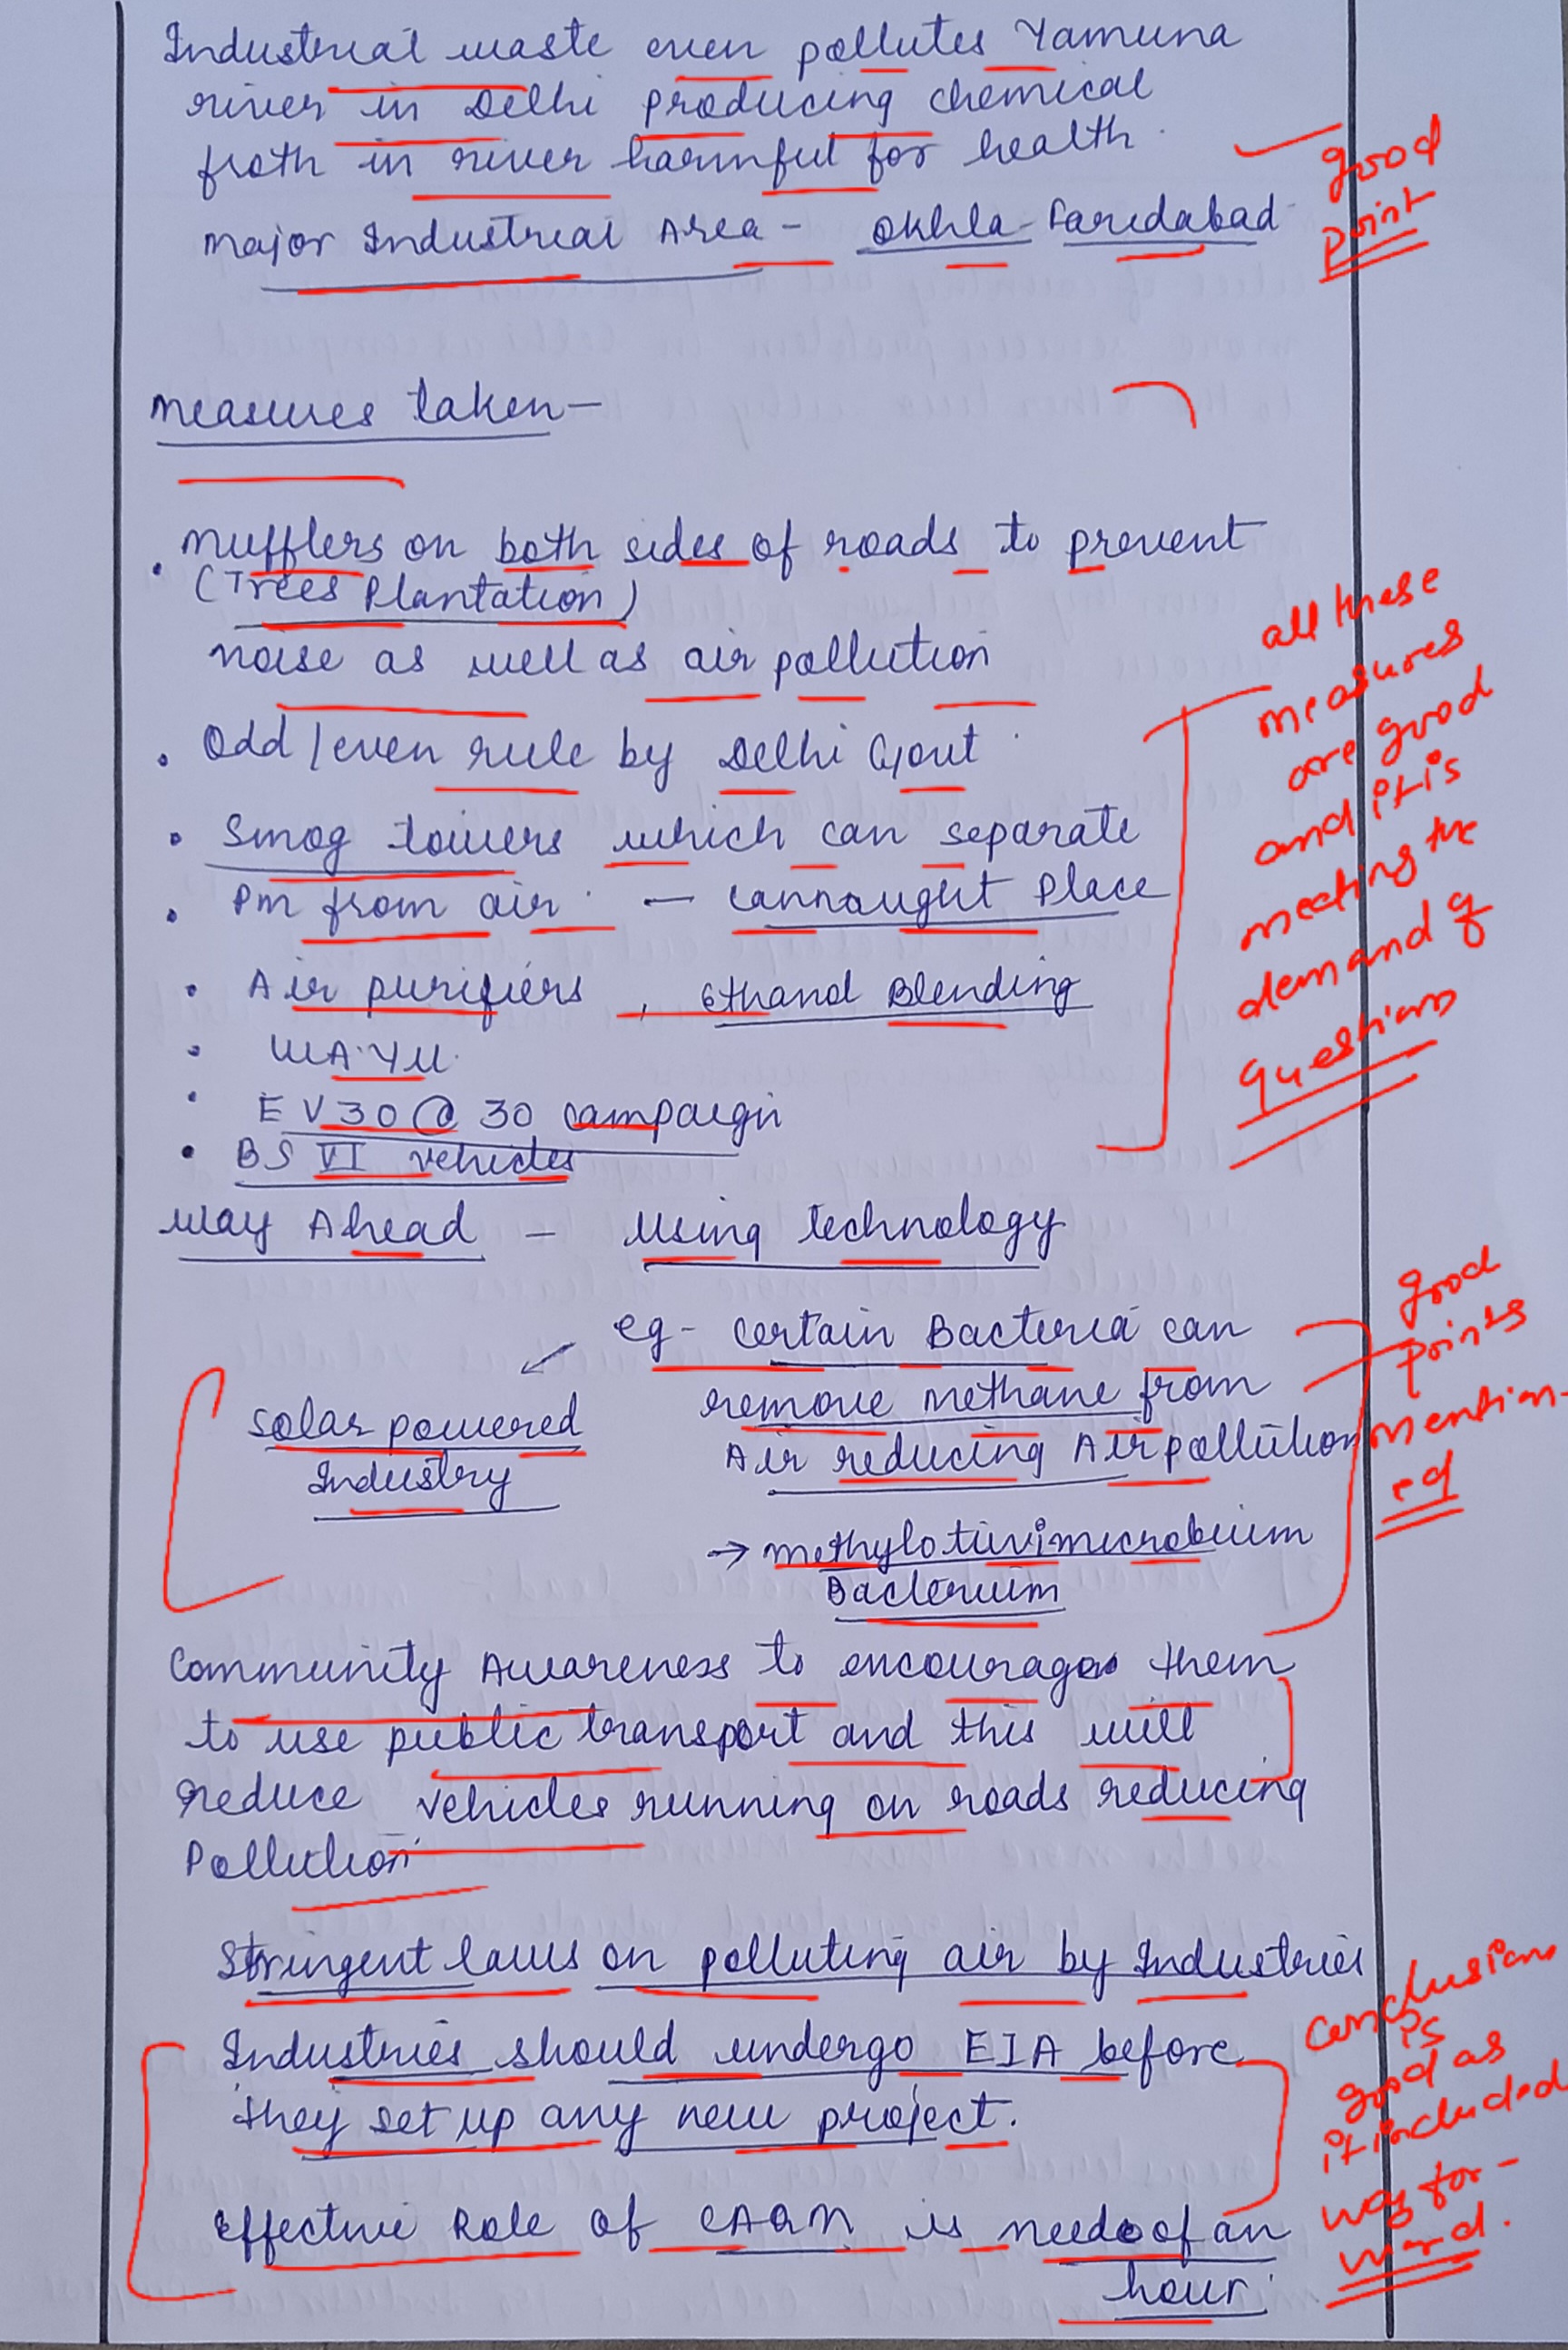 Industrial waste even pollutes Yamuna
river in Delhi producing chemical
froth in river harmful for health.
good
point
Major Industrial Area - Okhla-Faridabad
Measures taken-
• Mufflers on both sides of roads to prevent
(Trees Plantation)
noise as well as air pollution
• Odd/even rule by Delhi Govt.
• Smog towers which can separate
• PM from air. - Cannaught Place
• Air purifiers, Ethanol Blending
• WAYU.
• EV30@30 campaign
• BS VI vehicles
all these
measures
are good
and it is
meeting the
demand of
questions
Way Ahead - Using technology
eg- certain Bacteria can
remove methane from
Air reducing Air pollution
→ methylotuvimicrobium
Bacterium
Solar powered
Industry
good
points
mention-
ed
Community Awareness to encourage them
to use public transport and this will
reduce vehicles running on roads reducing
Pollution.
Stringent laws on polluting air by Industries
Industries should undergo EIA before
they set up any new project.
Effective Role of CAQM is need of an
hour.
Conclusion
is
good as
it included
way for-
ward.